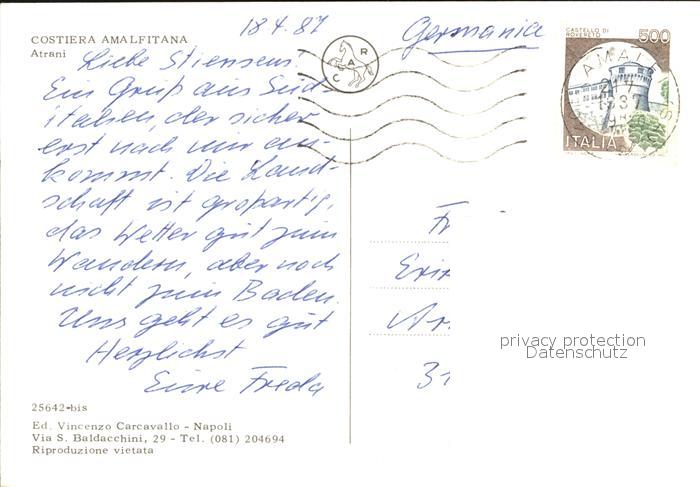 COSTIERA AMALFITANA
Atrani
18.4.87
Germania
Liebe Stiensens!
Ein Gruß aus Süd-
italien, der sicher
erst nach mir an-
kommt. Die Land-
schaft ist großartig,
das Wetter gut zum
Wandern, aber noch
nicht zum Baden.
Uns geht es gut
Herzlichst
Eure Freda
C A R
CASTELLO DI
ROVERETO
500
ITALIA
Fr
Erik
31
privacy protection
Datenschutz
25642-bis
Ed. Vincenzo Carcavallo - Napoli
Via S. Baldacchini, 29 - Tel. (081) 204694
Riproduzione vietata